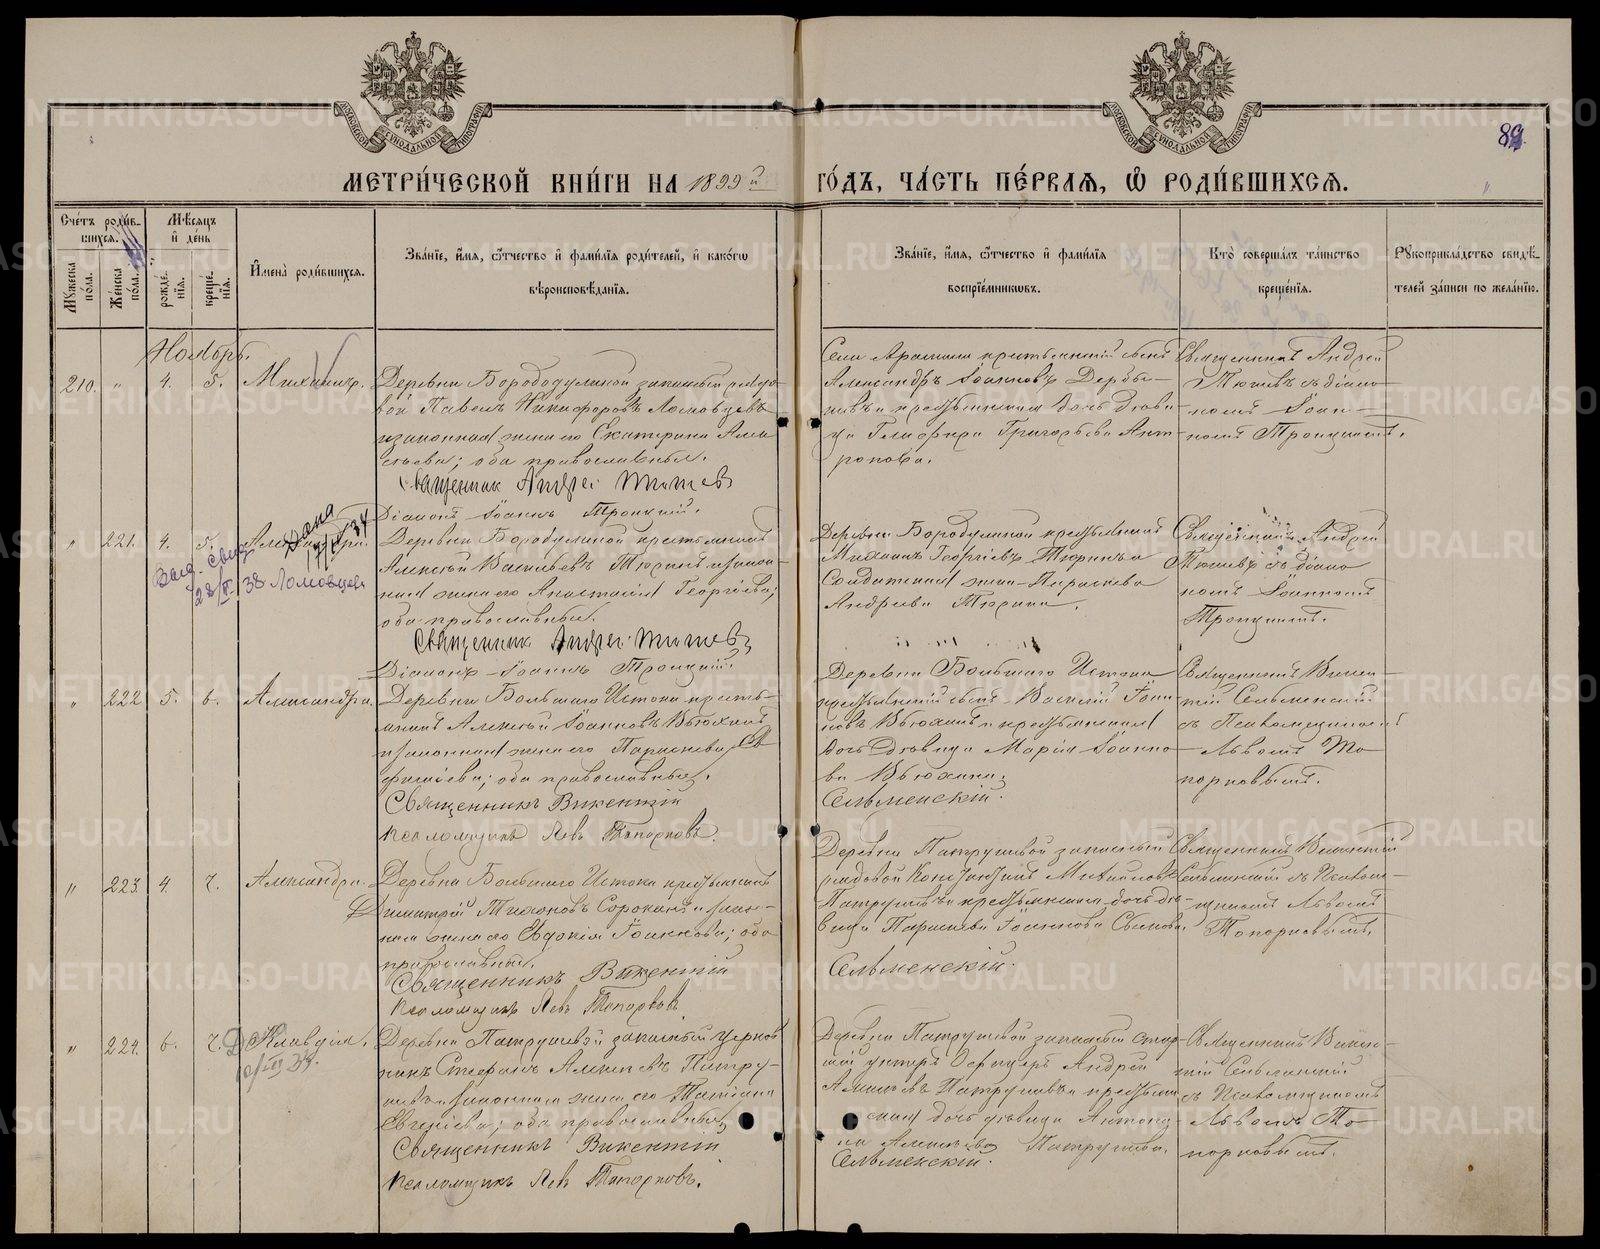 МЕТРИ́ЧЕСКОЙ КНИ́ГИ НА 1899й ГО́ДЪ, ЧА́СТЬ ПЕ́РВАЯ, Ѽ РОДИ́ВШИХСЯ.
89
Сче́тъ роди́в-
шихся.
Му́жеска по́ла.
Же́нска по́ла.
Мѣ́сяцъ и де́нь
рожде́нїя.
креще́нїя.
Имена̀ роди́вшихся.
Зва́нїе, и́мя, ѻ́тчество и фами́лїя роди́телей, и како́гѡ
вѣроисповѣ́данїя.
Зва́нїе, и́мя, ѻ́тчество и фами́лїя
воспрїе́мникѡвъ.
Кто̀ соверша́лъ та́инство
креще́нїя.
Рꙋкоприкла́дство свидѣ́-
телей за́писи по жела́нїю.
Ноябрь.
210. " 4. 5.
Деревни Бородулиной запасный рядо-
вой Павелъ Никифоровъ Ломовцевъ
и законная жена его Екатерина
оба православные.
Священник Андрей
Дiаконъ Iоаннъ Троицкiй.
Села Арамили крестьянскiй сынъ
Александръ Iоанновъ
и крестьянская дочь дѣви-
ца Глафира Григорьева Ант-
ропова.
Священникъ Андрей
съ дiако-
номъ Iоан-
номъ Троицкимъ.
" 221. 4. 5.
Дана
Выд. свид.
38 Ломовцева
Деревни Бородулиной крестьянинъ
Алексѣй Васильевъ Тюринъ и закон-
ная жена его Анастасiя Георгiева;
оба православные.
Священник Андрей
Дiаконъ Iоаннъ Троицкiй.
Деревни Бородулиной крестьянинъ
Михаилъ Георгiевъ Тюринъ и
Солдатская жена Параскева
Андреева Тюрина.
Священникъ Андрей
съ дiако
номъ Iоанномъ
Троицкимъ.
" 222 5. 6. Александра.
Деревни Большаго Истока кресть-
янинъ Алексѣй Iоанновъ Вьюхинъ
и законная жена его Параскева
оба православные.
Священникъ Викентiй
Псаломщикъ Левъ Топорковъ.
Деревни Большаго Истока
крестьянскiй сынъ Василiй Iоан-
новъ Вьюхинъ и крестьянская
дочь дѣвица Марiя Iоанно-
ва Вьюхина.
Сельменскiй.
Священникъ Викен-
тiй Сельменскiй
съ Псаломщикомъ
Львомъ То-
порковымъ.
" 223. 4. 7. Александра.
Деревни Большаго Истока крестьянинъ
Димитрiй Тихоновъ Сорокинъ и закон-
ная жена его Евдокiя Iоаннова; оба
православные.
Священникъ Викентiй
Псаломщикъ Левъ Топорковъ.
Деревни Патрушевой запасный
рядовой Константинъ Михайловъ
Патрушевъ и крестьянская дочь дѣ-
вица Параскева Iоаннова
Сельменскiй.
Священникъ Викентiй
Сельменскiй съ Псалом-
щикомъ Львомъ
Топорковымъ.
" 224. 6. 7. Клавдiя.
Деревни Патрушевой запасный
Стефанъ Алексѣевъ Патру-
шевъ и законная жена его Татiана
Евгенiева; оба православные.
Священникъ Викентiй
Псаломщикъ Левъ Топорковъ.
Деревни Патрушевой запасный стар-
шiй унтеръ Офицеръ Андрей
Алексѣевъ Патрушевъ и крестьян-
ская дочь дѣвица Антони-
на Алексѣева Патрушева.
Сельменскiй.
Священникъ Викен-
тiй Сельменскiй
съ Псаломщикомъ
Львомъ То-
порковымъ.
METRIKI.GASO-URAL.RU